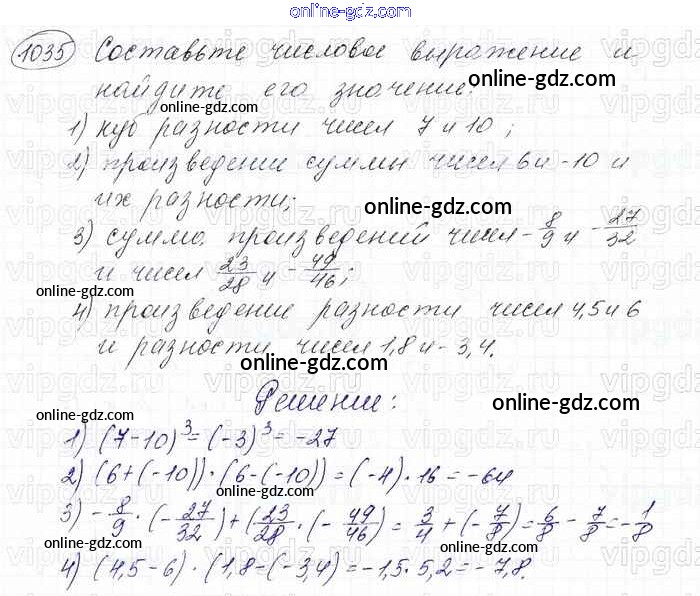 online-gdz.com
1035 Составьте числовое выражение и
online-gdz.com
найдите его значение:
online-gdz.com
1) куб разности чисел 7 и 10;
2) произведение суммы чисел 6 и -10 и
их разности;
online-gdz.com
3) сумма произведений чисел -8/9 и -27/32
и чисел 23/28 и -49/46;
online-gdz.com
4) произведение разности чисел 4,5 и 6
и разности чисел 1,8 и -3,4.
online-gdz.com
Решение:
online-gdz.com
online-gdz.com
1) (7-10)³=(-3)³=-27
2) (6+(-10))·(6-(-10))=(-4)·16=-64
online-gdz.com
3) -8/9·(-27/32)+(23/28·(-49/46)=3/4+(-7/8)=6/8-7/8=-1/8
online-gdz.com
online-gdz.com
4) (4,5-6)·(1,8-(-3,4)=-1,5·5,2=-7,8.
online-gdz.com